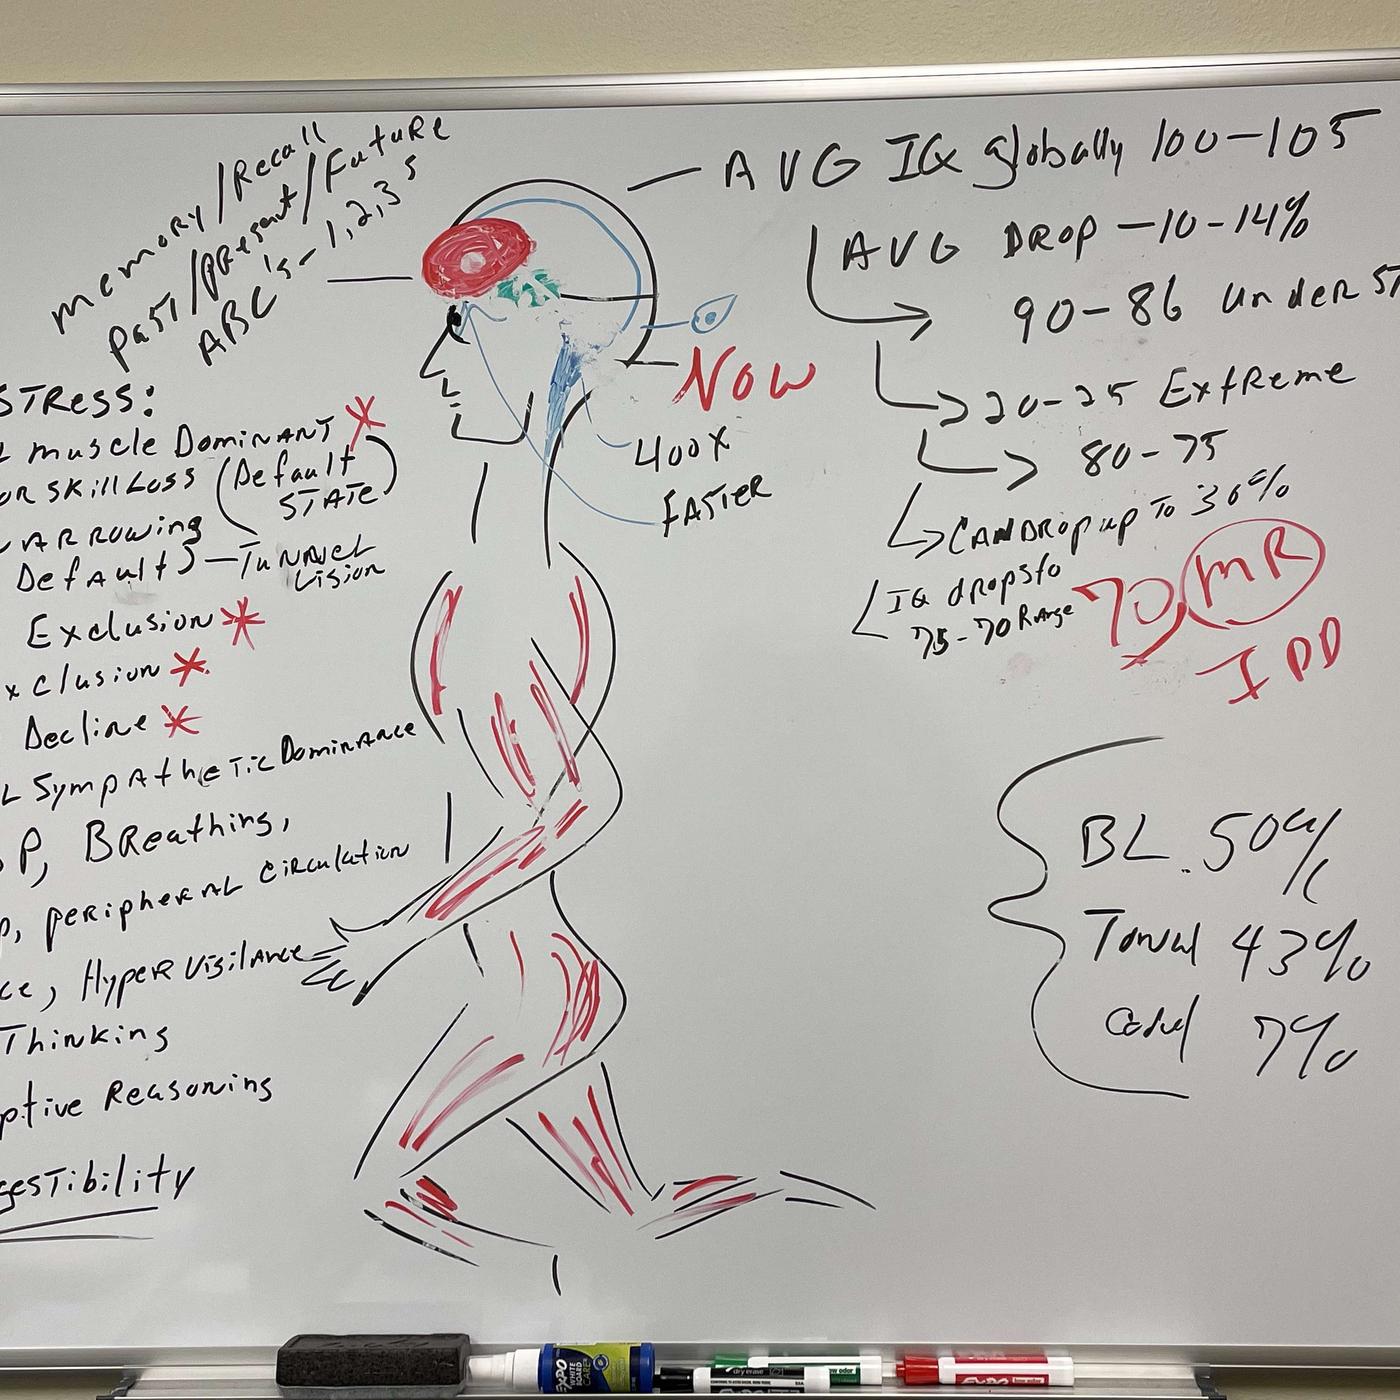 memory/Recall
Past/present/Future
ABC's - 1,2,3's
STRESS:
L muscle DOMINANT
OR SKILL LOSS (Default STATE)
NARROWING
Default) - TUNNEL Vision
Exclusion
xclusion
Decline
L SympAtheTic Dominance
P, BReathing,
p, peRipheRAL CiRculation
ce, HypeR Vigilance
Thinking
ptive Reasoning
gesTibility
NOW
400X
FASTER
AVG IQ globally 100-105
AVG DROP -10-14%
90-86 under ST
20-25 ExtReme
80-75
CAN DROP up To 30%
IQ drops to
75-70 Range
70 MR
IDD
BL. 50%
43%
7%
EXPO
WHITE BOARD CARE
low odor
EXPO